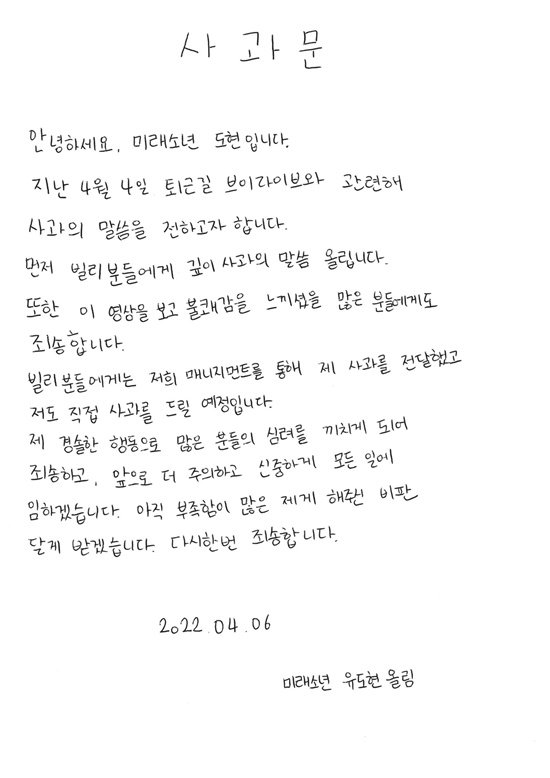 사과문
안녕하세요, 미래소년 도현입니다.
지난 4월 4일 퇴근길 브이라이브와 관련해
사과의 말씀을 전하고자 합니다.
먼저 빌리분들에게 깊이 사과의 말씀 올립니다.
또한 이 영상을 보고 불쾌감을 느끼셨을 많은 분들에게도
죄송합니다.
빌리분들에게는 저희 매니지먼트를 통해 제 사과를 전달했고
저도 직접 사과를 드릴 예정입니다.
제 경솔한 행동으로 많은 분들의 심려를 끼치게 되어
죄송하고, 앞으로 더 주의하고 신중하게 모든 일에
임하겠습니다. 아직 부족함이 많은 제게 해주신 비판
달게 받겠습니다. 다시한번 죄송합니다.
2022.04.06
미래소년 유도현 올림